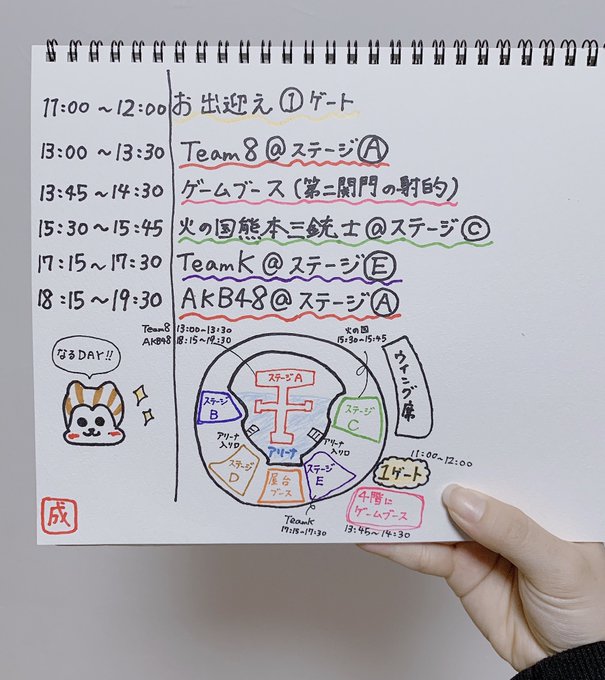 11:00～12:00 お出迎え①ゲート
13:00～13:30 Team8@ステージⒶ
13:45～14:30 ゲームブース(第二関門の射的)
15:30～15:45 火の国熊本三銃士@ステージⒸ
17:15～17:30 TeamK@ステージⒺ
18:15～19:30 AKB48@ステージⒶ
Team8 13:00～13:30
AKB48 18:15～19:30
火の国
15:30～15:45
なるDAY!!
ステージA
ウィング席
ステージ
B
ステージ
C
アリーナ
入り口
アリーナ
入り口
アリーナ
ステージ
D
屋台
ブース
ステージ
E
11:00～12:00
1ゲート
4階に
ゲームブース
13:45～14:30
TeamK
17:15～17:30
成